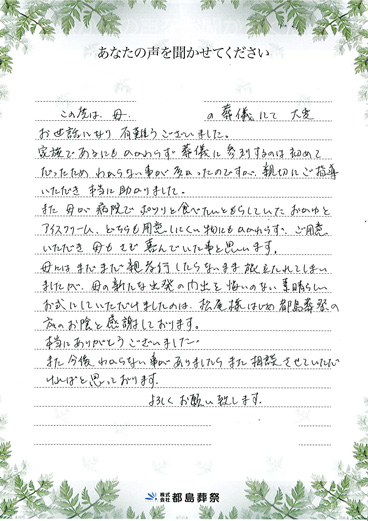 あなたの声を聞かせてください
この度は、母、 の葬儀にて 大変
お世話になり 有難うございました。
家族であるにもかかわらず 葬儀に参列するのは初めて
だったため わからない事が多かったのですが、親切にご指導
いただき 本当に助かりました。
また 母が病院でポツリと食べたいともらしていた おかゆと
アイスクリーム、どちらも用意しにくい物にもかかわらず、ご用意
いただき 母もさぞ喜んでいた事と思います。
母にはまだまだ親孝行したらないまま旅立たれてしまい
ましたが、母の新たな出発の門出を悔いのない素晴らしい
お式にしていただけましたのは、松尾様はじめ都島葬祭の
方のお陰と感謝しております。
本当にありがとうございました。
また今後 わからない事がありましたら また相談させていただ
ければと思っております。
よろしくお願い致します。
株式会社 都島葬祭